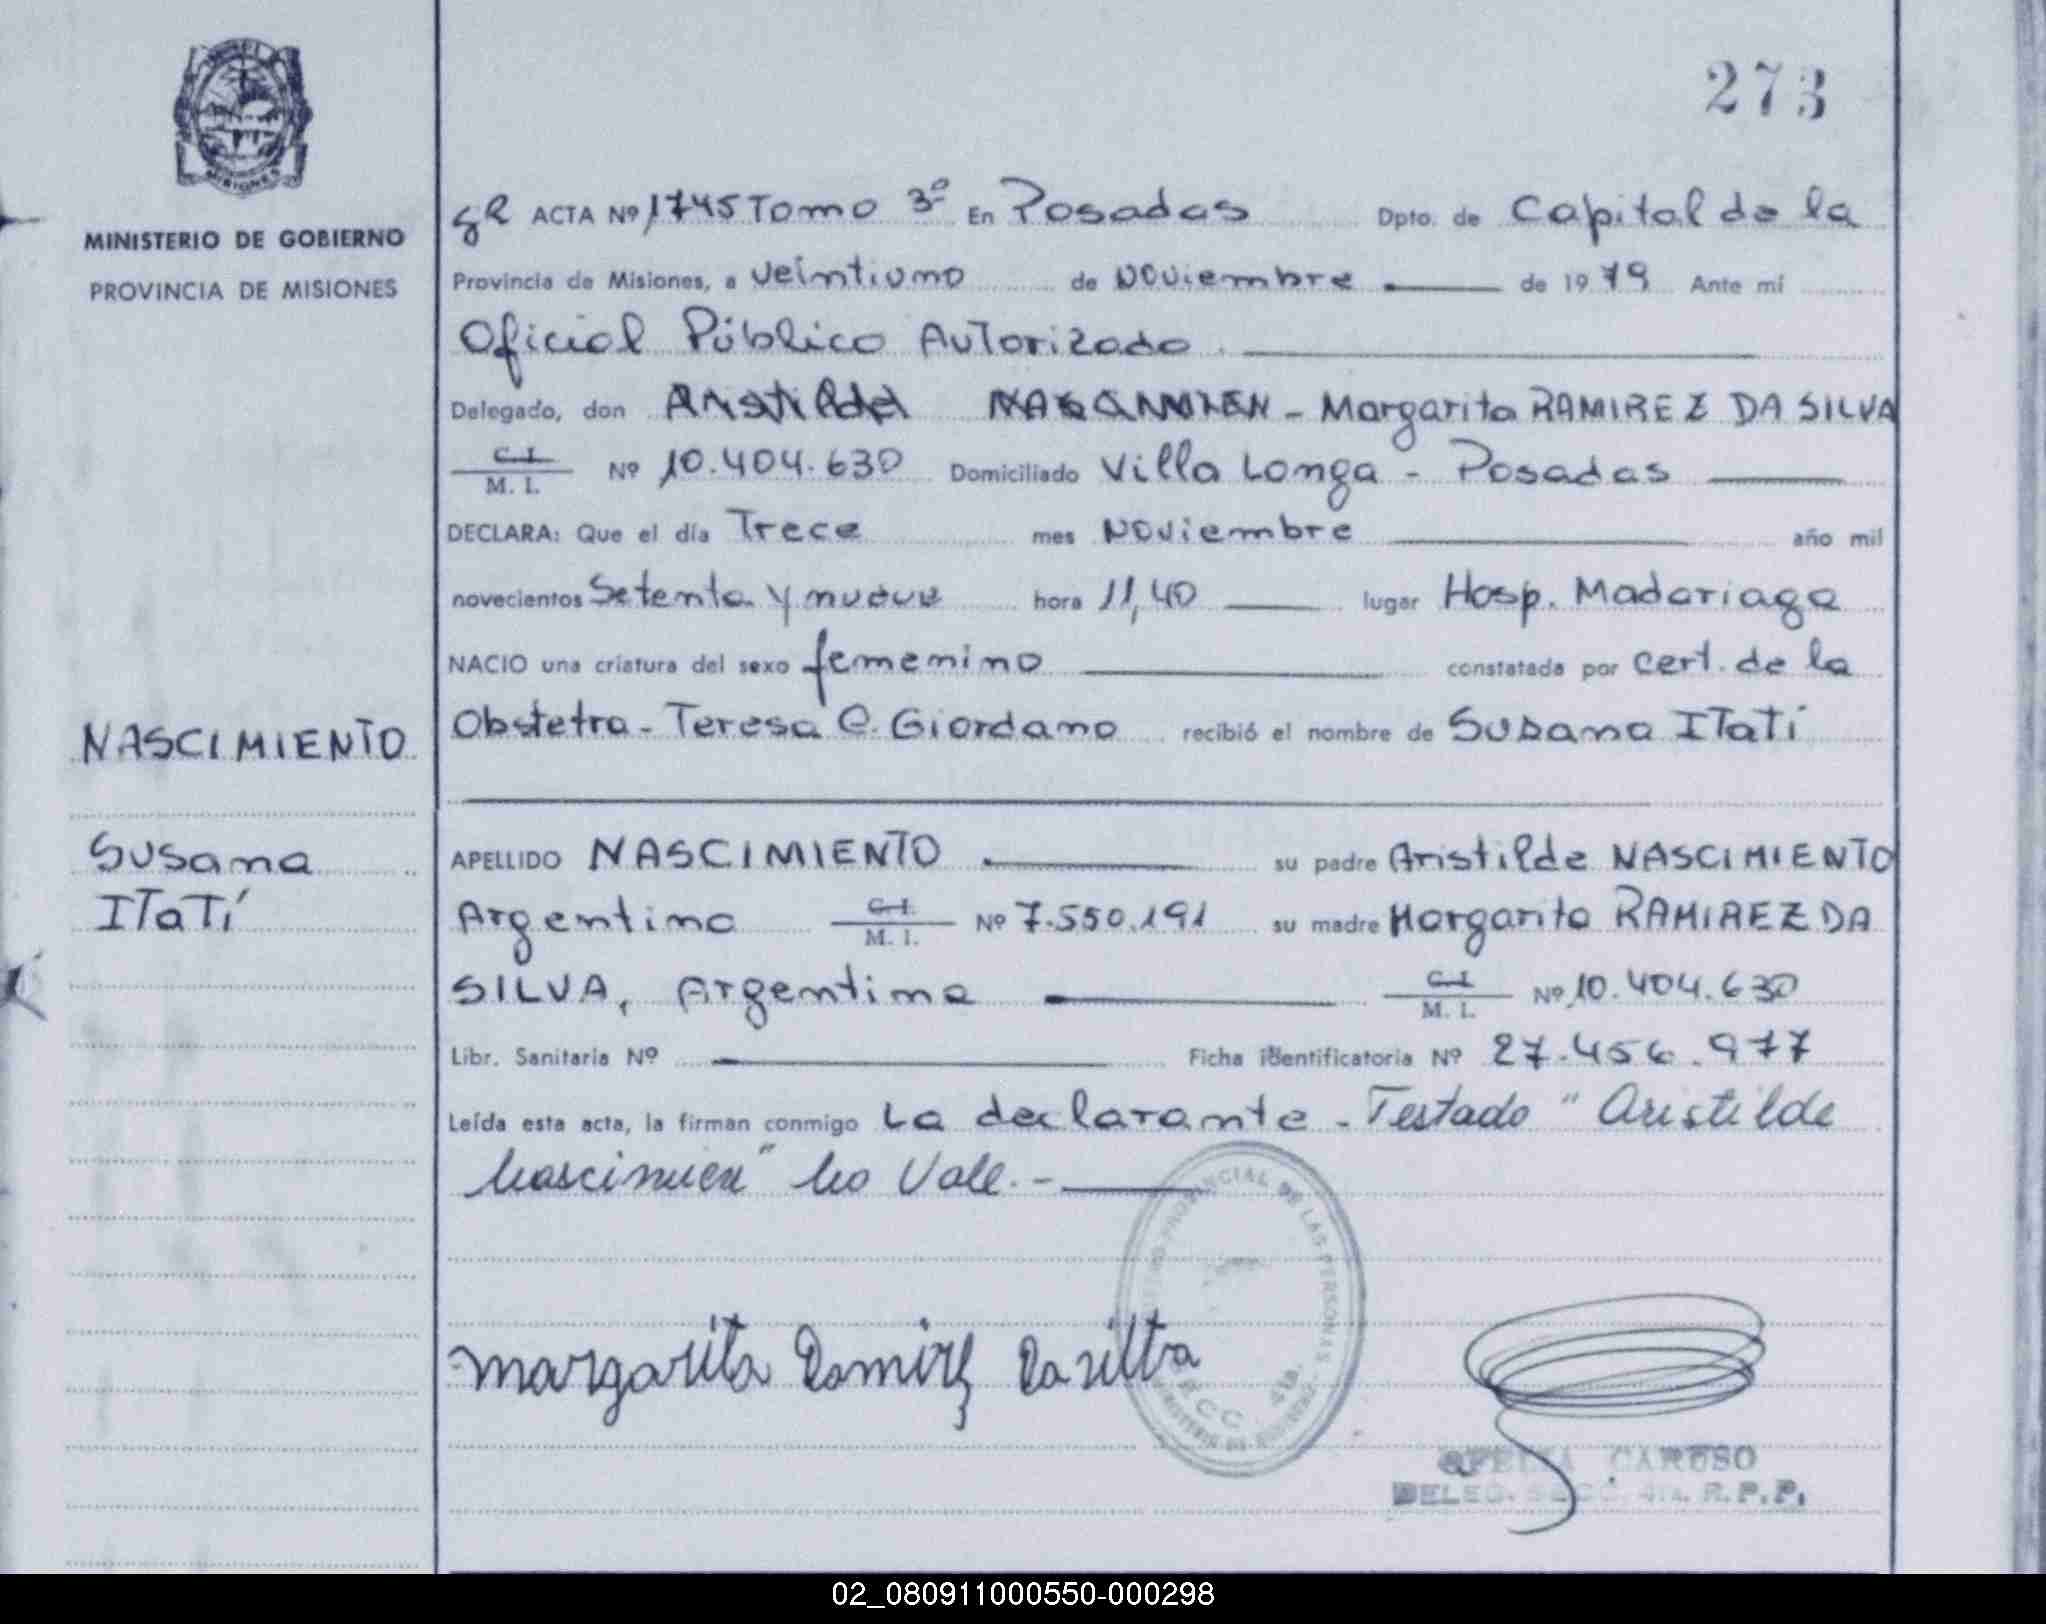 273
MISIONES
MINISTERIO DE GOBIERNO
PROVINCIA DE MISIONES
NASCIMIENTO
Susana
ITaTí
gR ACTA Nº 1745 Tomo 3º En Posadas Dpto. de Capital de la
Provincia de Misiones, a Veintiuno de Noviembre de 1979 Ante mí
Oficial Público Autorizado
Delegado, don Aristilde - Margarita RAMIREZ DA SILVA
C. I. / M. I. Nº 10.404.630 Domiciliado Villa Longa - Posadas
DECLARA: Que el día Trece mes Noviembre año mil
novecientos Setenta y nueve hora 11,40 lugar Hosp. Madariaga
NACIO una criatura del sexo femenino constatada por cert. de la
Obstetra - Teresa C. Giordano recibió el nombre de Susana ITatí
APELLIDO NASCIMIENTO su padre Aristilde NASCIMIENTO
Argentino C. I. / M. I. Nº 7.550.191 su madre Margarita RAMIREZ DA
SILVA, Argentina C. I. / M. I. Nº 10.404.630
Libr. Sanitaria Nº Ficha identificatoria Nº 27.456.977
Leída esta acta, la firman conmigo La declarante - Testado "Aristilde
Nascimien" No Vale.-
PROVINCIAL DE LAS PERSONAS
SECC. 4ta.
Margarita Ramirez Da silba
OFELIA CARUSO
DELEG. SECC. 4ta. R.P.P.
02_080911000550-000298